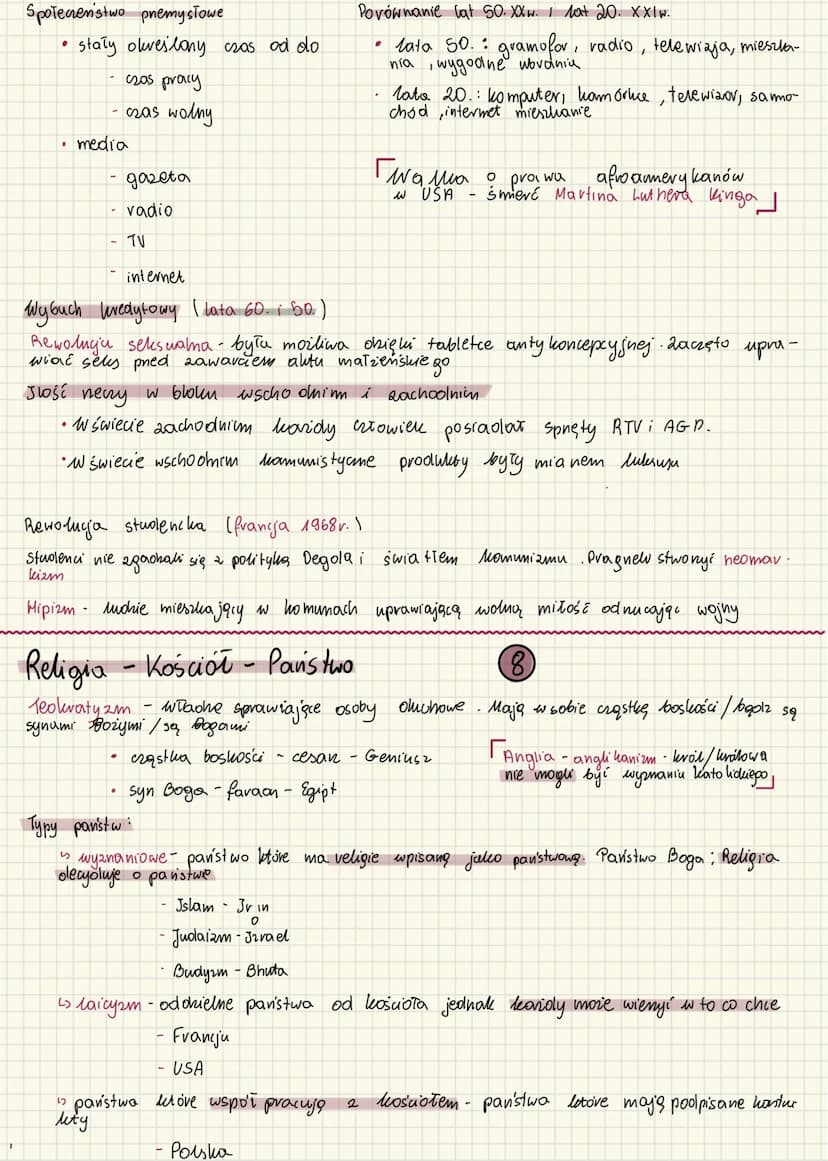 Społeczeństwo przemysłowe
• stały określony czas od do
- czas pracy
- czas wolny
• media
- gazeta
- radio
- TV
- internet
Porównanie lat 50. XXw. i lat 20. XXIw.
• lata 50. : gramofon, radio, telewizja, mieszka-
nia, wygodne ubrania
• lata 20.: komputer, komórka, telewizor, samo-
chód, internet mieszkanie
Walka o prawa afroamerykanów
w USA - śmierć Martina Luthera Kinga
Wybuch kredytowy (lata 60. i 50.)
Rewolucja seksualna - była możliwa dzięki tabletce antykoncepcyjnej. Zaczęto upra-
wiać seks przed zawarciem aktu małżeńskiego
Ilość rzeczy w bloku wschodnim i zachodnim
• W świecie zachodnim każdy człowiek posiadał sprzęty RTV i AGD.
• W świecie wschodnim komunistyczne produkty były mianem luksusu
Rewolucja studencka (Francja 1968r.)
Studenci nie zgadzali się z polityką Degola i światłem komunizmu. Pragneli stworzyć neomar-
kizm
Hipizm - ludzie mieszkający w komunach uprawiającą wolną miłość odrzucając wojny
Religia - Kościół - Państwo
8
Teokratyzm - władzę sprawiające osoby duchowe. Mają w sobie cząstkę boskości / bądz są
synami Bożymi / są bogami
• cząstka boskości - cesarz - Geniusz
• syn Boga - faraon - Egipt
Anglia - anglikanizm - król/królowa
nie mogli być wyznaniu katolickiego
Typy państw:
↳ wyznaniowe - państwo które ma religie wpisaną jako państwową. Państwo Boga ; Religia
decyduje o państwe
- Islam - Iran
- Judaizm - Izrael
- Budyzm - Bhuta
↳ laicyzm - oddzielne państwa od kościoła jednak każdy może wierzyć w to co chce
- Francja
- USA
↳ państwa które współpracują z kościołem - państwa które mają podpisane konkor
daty
- Polska